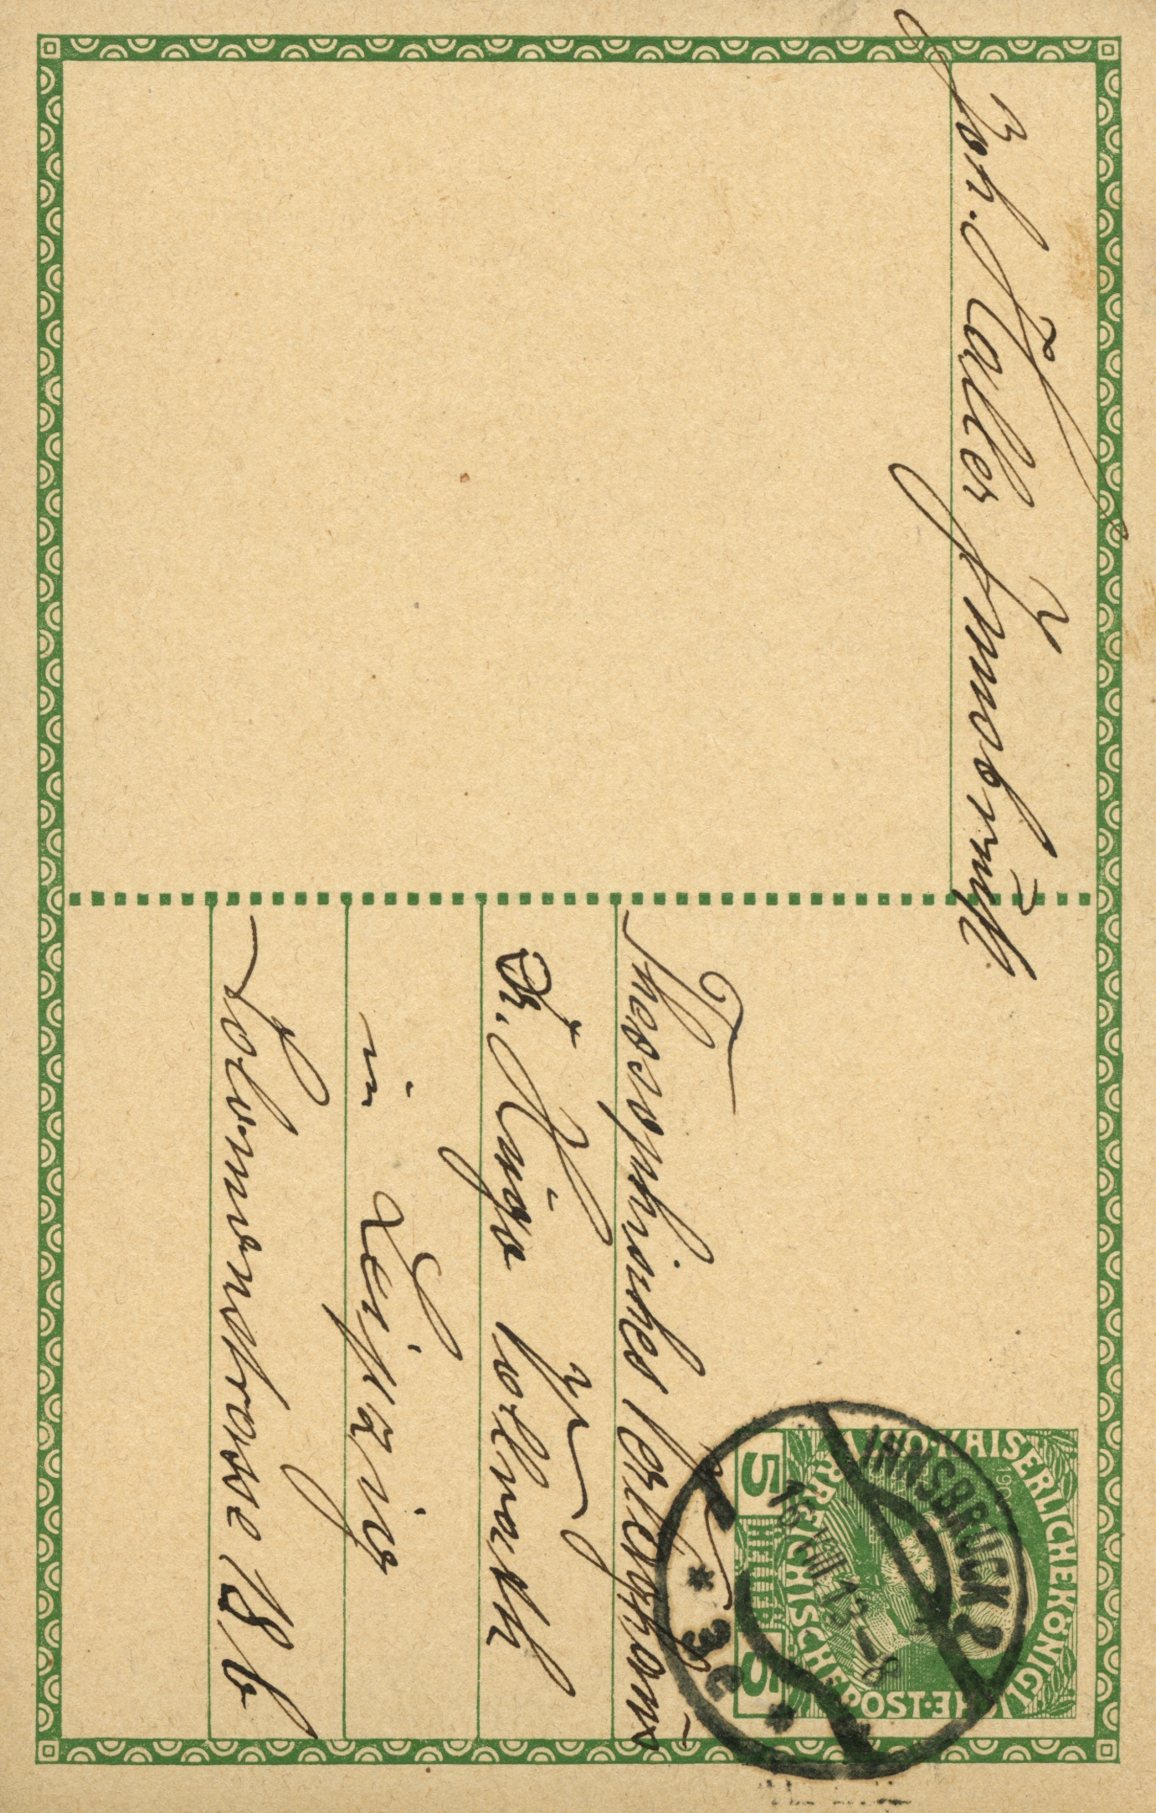 Joh. Haller Innsbruck
Theosophisches Verlagshaus
Dr. Hugo Vollrath
in Leipzig
Salomonstrasse 18 b
KAISERLICHE KÖNIGLICHE
ÖSTERREICHISCHE POST
5 HELLER 5
INNSBRUCK 2
16.VIII.13–8
* 3c *